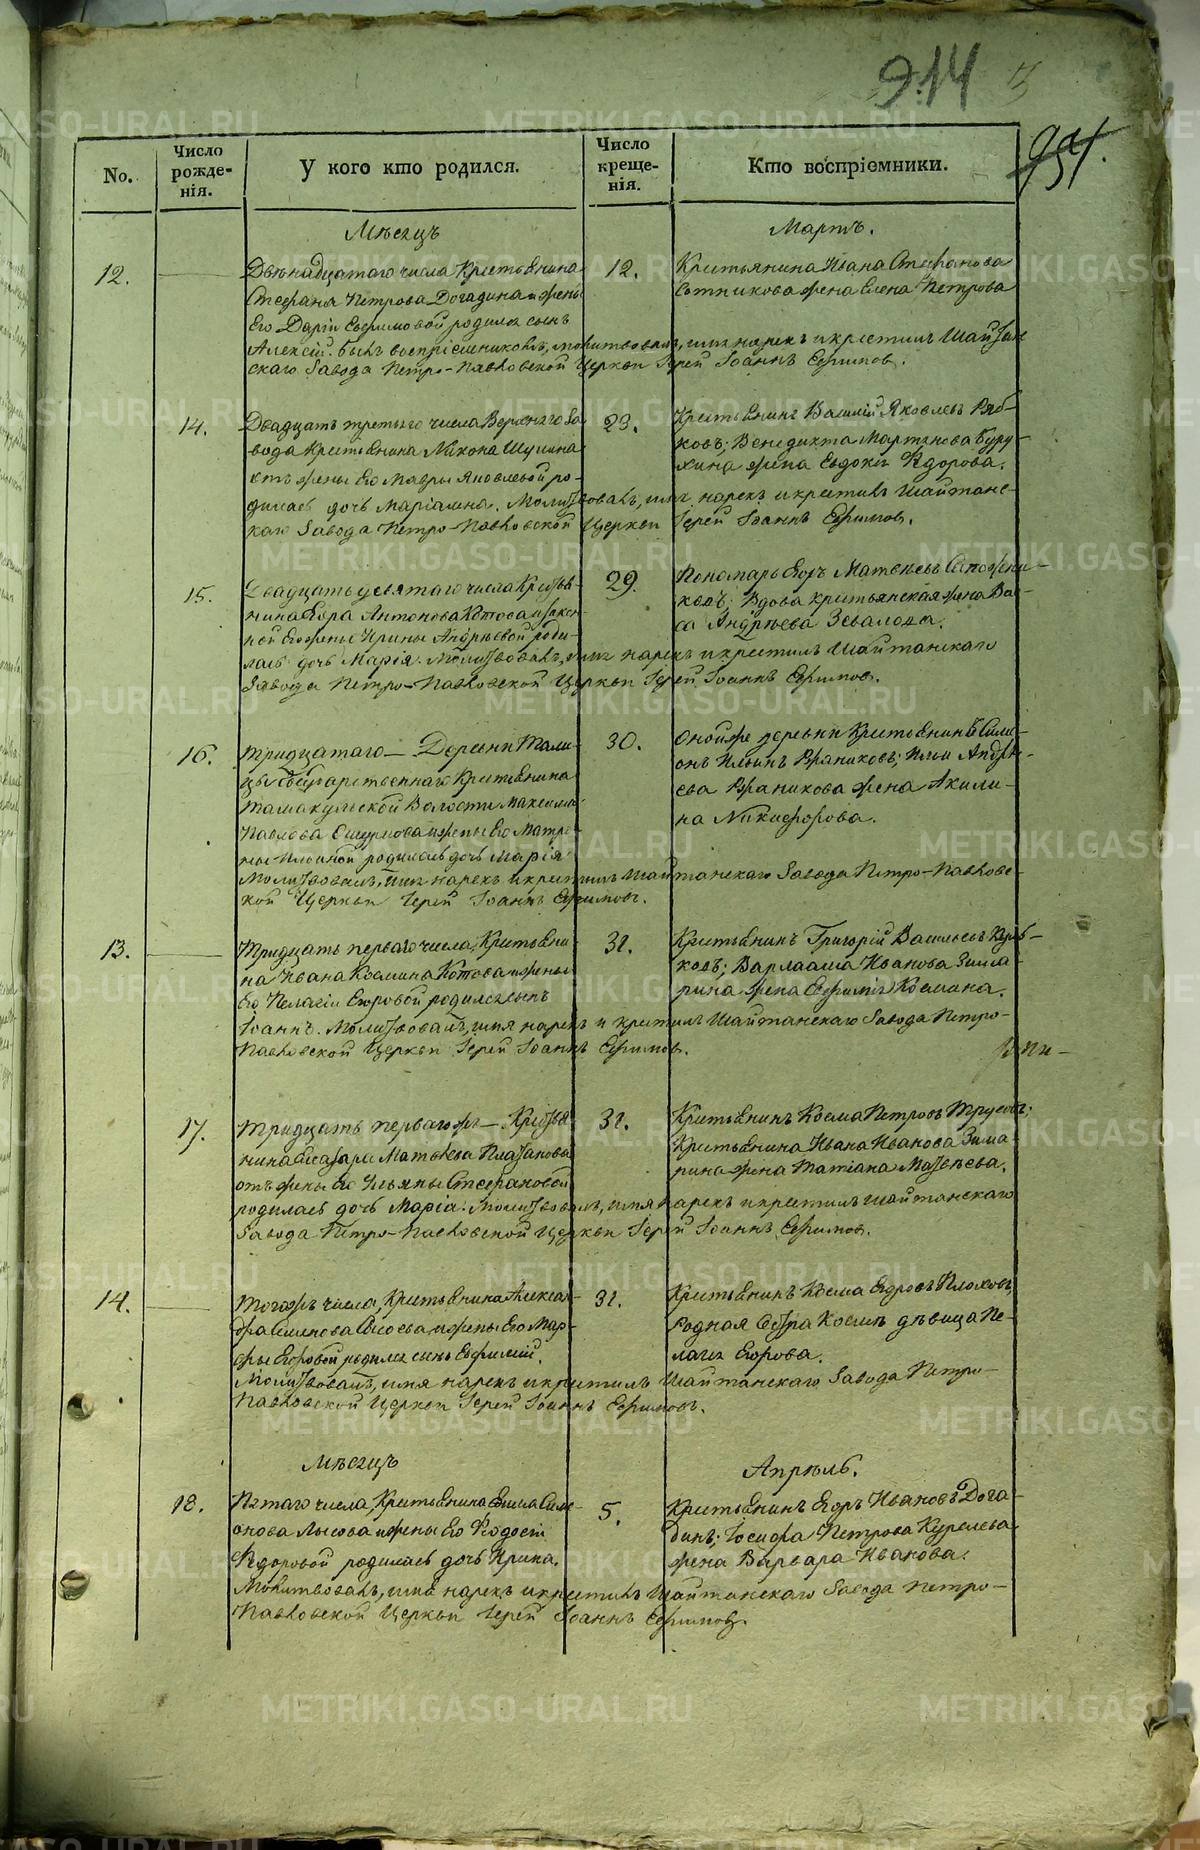 914
954.
No.
Число рожденія.
У кого кто родился.
Число крещенія.
Кто воспріемники.
Мѣсяцъ
Мартъ.
12.
Двѣнадцатаго числа Крестьянина
Стефана Петрова Догадина и жены
Его Дарьи Евфимовой родился сынъ
Алексій. былъ воспріемникомъ, молитвовалъ, имя нарекъ и крестилъ Шайтан
скаго Завода Петро-Павловской Церкви Іерей Іоаннъ Ефимовъ.
12.
Крестьянина Ивана Стефанова
Сотникова жена Елена Петрова
14.
Двадцать третьяго числа Верхняго За
вода Крестьянина Никона
отъ жены Его Мавры Яковлевой ро-
дилась дочь Маріамна. Молитвовалъ, имя нарекъ и крестилъ Шайтанс-
каго Завода Петро-Павловской Церкви Іерей Іоаннъ Ефимовъ.
23.
Крестьянинъ Василій Яковлевъ Ряб-
ковъ; Венедикта Мартинова Буру-
хина жена Евдокія Ѳедорова.
15.
Двадцать девятаго числа Крестья-
нина Егора Антонова Котова и закон-
ной Его жены Ирины Андреевой роди-
лась дочь Марія. Молитвовалъ, имя нарекъ и крестилъ Шайтанскаго
Завода Петро-Павловской Церкви Іерей Іоаннъ Ефимовъ.
29.
Пономарь Егоръ Матвѣевъ Сапожни-
ковъ; Вдова крестьянская жена Ва-
са Андрѣева
16.
Тридцатаго — Деревни Тали-
цы Государственнаго Крестьянина
Тамакульской Волости Максима
Павлова и жены Его Матре-
ны Ильиной родилась дочь Марія
Молитвовалъ, имя нарекъ и крестилъ Шайтанскаго Завода Петро-Павловс-
кой Церкви Іерей Іоаннъ Ефимовъ.
30.
Оной же деревни Крестьянинъ Сими-
онъ Ильинъ Ильи Андрѣ-
ева жена Акили-
на Никифорова.
13.
Тридцать перваго числа, Крестьяни-
на Ивана Космина Котова и жены
Его Пелагіи Егоровой родился сынъ
Іоаннъ. Молитвовалъ, имя нарекъ и крестилъ Шайтанскаго Завода Петро-
Павловской Церкви Іерей Іоаннъ Ефимовъ.
31.
Крестьянинъ Григорій Васильевъ
ковъ; Варлаама Иванова Зима-
рина жена Евфимія Космина.
17.
Тридцать перваго же — Крестья
нина Елазара Матвѣева Плаханова
отъ жены его Ульяны Стефановой
родилась дочь Марія. Молитвовалъ, имя нарекъ и крестилъ Шайтанскаго
Завода Петро-Павловской Церкви Іерей Іоаннъ Ефимовъ.
31.
Крестьянинъ Косма Петровъ Трусовъ;
Крестьянина Ивана Иванова Зима-
рина жена Татіана Матвѣева.
14.
Тогожъ числа, Крестьянина Алексан-
дра Симонова и жены Его Мар-
фы Егоровой родился сынъ Евфимій.
Молитвовалъ, имя нарекъ и крестилъ Шайтанскаго Завода Петро-
Павловской Церкви Іерей Іоаннъ Ефимовъ.
31.
Крестьянинъ Косма Егоровъ Плоховъ,
Родная Сестра Космы дѣвица Пе-
лагія Егорова.
Мѣсяцъ
Апрѣль.
18.
Пятаго числа, Крестьянина Симе-
онова Лысова и жены Его Ѳеодосіи
Ѳедоровой родилась дочь Ирина.
Молитвовалъ, имя нарекъ и крестилъ Шайтанскаго Завода Петро-
Павловской Церкви Іерей Іоаннъ Ефимовъ.
5.
Крестьянинъ Егоръ Ивановъ Дога-
динъ; Іосифа Петрова Курелева
жена Варвара Иванова.
METRIKI.GASO-URAL.RU